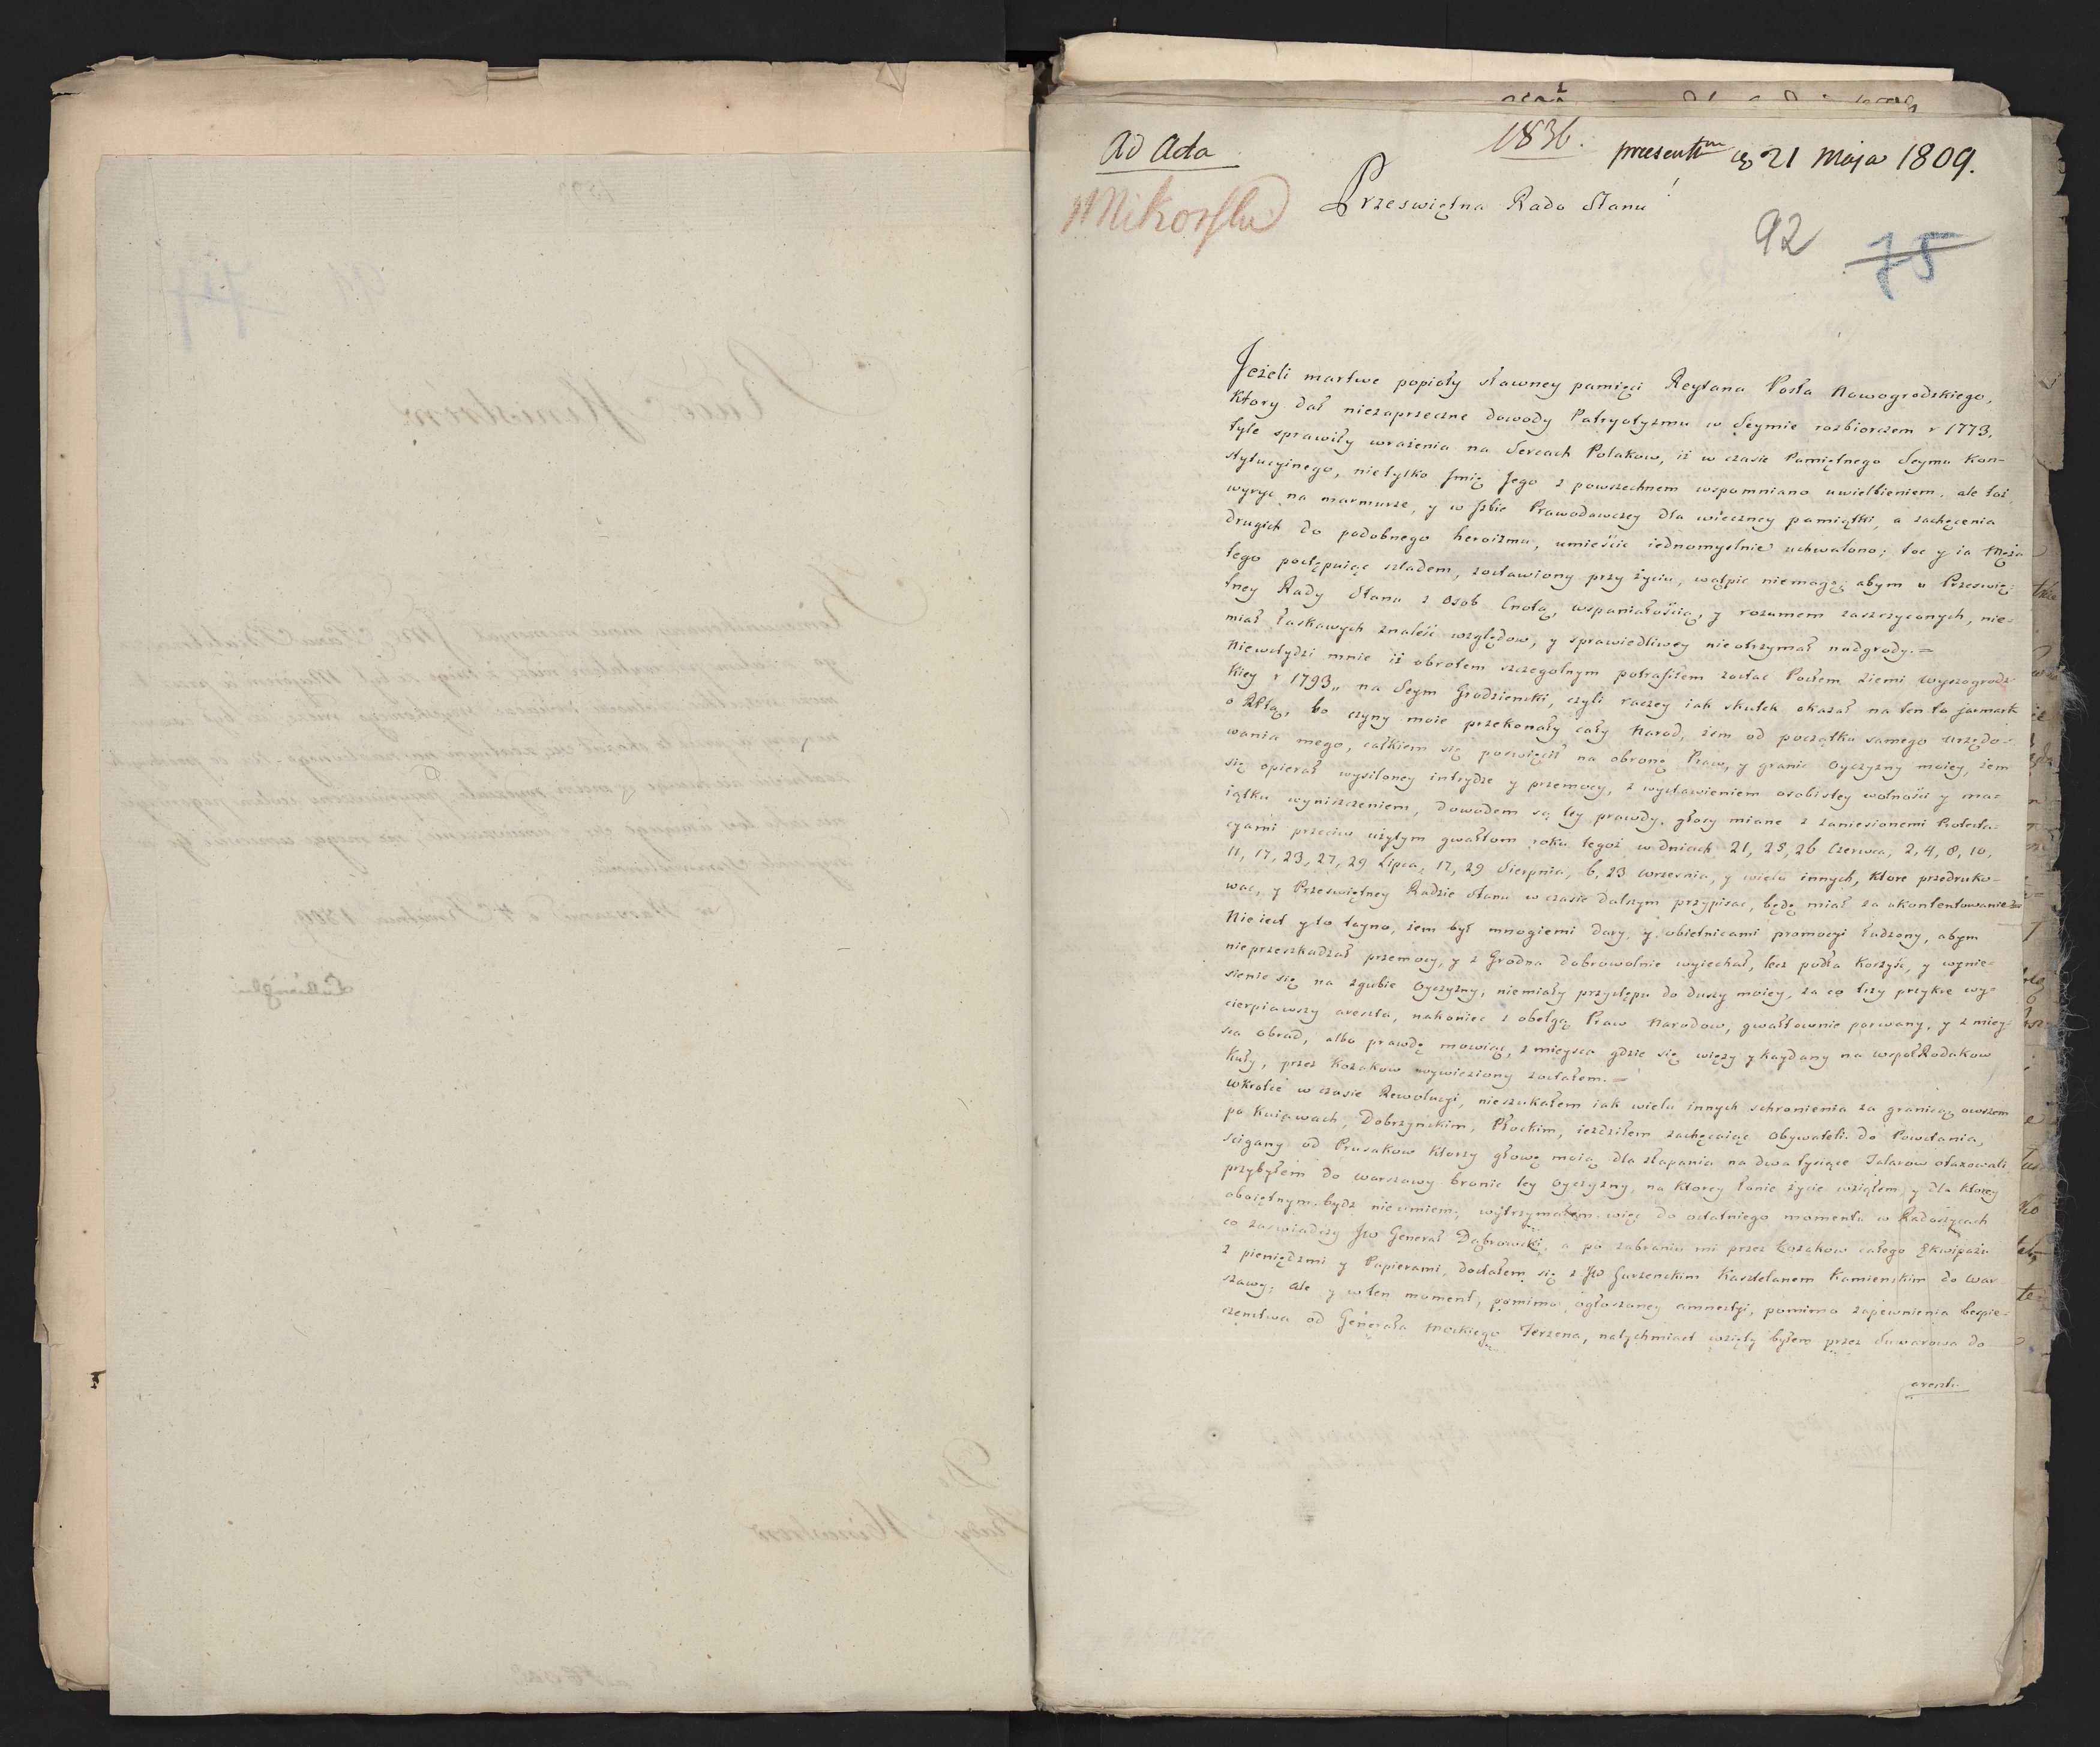 Ad Acta
1836.
praesentm 21 Maja 1809.
Mikorski
Przeswiętna Rado Stanu!
92
75
Jeżeli martwe popioły sławney pamięci Reytana Posła Nowogrodzkiego,
Ktory dał niezaprzeczne dowody Patryotyzmu w Seymie rozbiorczem r 1773,
tyle sprawiły wrażenia na Sercach Polakow, iż w czasie Pamiętnego Seymu Kon-
stytucyinego, nietylko Jmię Jego z powszechnem wspomniano uwielbieniem, ale toż
wyryć na marmurze, y w Jzbie Prawodawczey dla wieczney pamiątki, a zachęcenia
drugich do podobnego heroizmu, umieścić iednomyslnie uchwalono; toć y ia Męża
tego postępuiąc szladem, zostawiony przy życiu, wątpić niemogę, abym u Przeswię-
tney Rady Stanu z osob Cnotą, wspaniałością, y rozumem zaszczyconych, nie-
miał łaskawych znaleść względow, y sprawiedliwey nieotrzymał nadgrody.=
Niewstydzi mnie iż obrotem szczegolnym potrafiłem zostać Posłem Ziemi Wyszogrodz-
kiey r 1793 na Seym Grodzienski, czyli raczey iak skutek okazał na ten to jarmark
o Rpltą, bo czyny moie przekonały cały Narod, żem od początku samego urzędo-
wania mego, całkiem się poswięcił na obronę Praw, y granic Oyczyzny moiey, żem
się opierał wysiloney intrydze y przemocy, z wystawieniem osobistey wolności y ma-
iątku wyniszczeniem, dowodem są tey prawdy, głosy miane z zaniesionemi Protesta-
cyami przeciw użytym gwałtom roku tegoż w dniach 21, 25, 26 Czerwca, 2, 4, 8, 10,
11, 17, 23, 27, 29 Lipca, 12, 29 Sierpnia, 6, 23 Wrzesnia, y wielu innych, Ktore przedruko-
wać, y Przeswiętney Radzie Stanu w czasie dalszym przypisać, będę miał za ukontentowanie=
Nie iest y to tayno, żem był mnogiemi dary, y obietnicami promocyi łudzony, abym
nieprzeszkadzał przemocy, y z Grodna dobrowolnie wyiechał, lecz podła Korzyść, y wynie-
sienie się na zgubie Oyczyzny, niemiały przystępu do duszy moiey, za co trzy przykre wy-
cierpiawszy areszta, nakoniec z obelgą Praw Narodow, gwałtownie porwany, y z miey-
sca obrad, albo prawdę mowiąc, z mieysca gdzie się więzy y kaydany na wspołRodakow
Kuły, przez Kozakow wywieziony zostałem.=
Wkrotce w czasie Rewolucyi, nieszukałem iak wielu innych schronienia za granicą, owszem
po Kuiawach, Dobrzynskim, Płockim, ieździłem zachęcaiąc Obywateli do Powstania,
scigany od Prusakow Ktorzy głowę moią dla złapania na dwa tysiące Talarow otaxowali,
przybyłem do Warszawy bronić tey Oyczyzny, na Ktorey łonie życie wziąłem, y dla Ktorey
oboiętnym bydź nieumiem; wytrzymałem więc do ostatniego momentu w Radoszycach
co zaswiadczy JW Generał Dąbrowski, a po zabraniu mi przez Kozakow całego Ekwipażu
z pieniędzmi y Papierami, dostałem się z JW Gurzenskim Kasztelanem Kamienskim do War-
szawy; ale y w ten moment, pomimo ogłoszoney amnestyi, pomimo zapewnienia bespie-
czenstwa od Generała Moskiego Ferzena, natychmiast wzięty byłem przez Suwarowa do
areszt